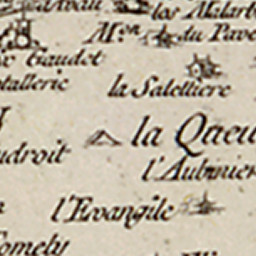 los Malarb
M.on du Pave
x Gaudet
tallerie
la Saletiere
la Qaeu
udroit
l'Aubinier
l'Evangile
omely